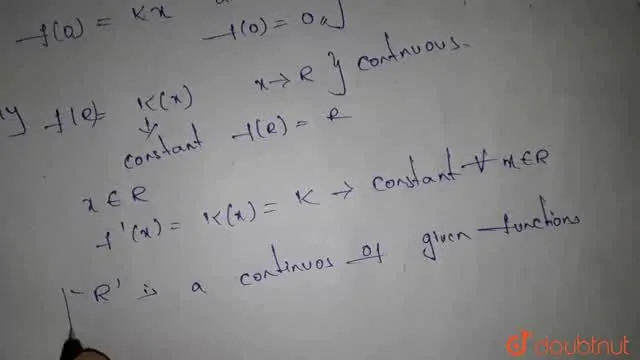 f(0) = Kx
f(0) = 0
f(R) = K(x) x → R } continuous.
constant f(R) = R
x ∈ R
f'(x) = K(x) = K → constant ∀ x ∈ R
R' is a continuos of given functions
doubtnut